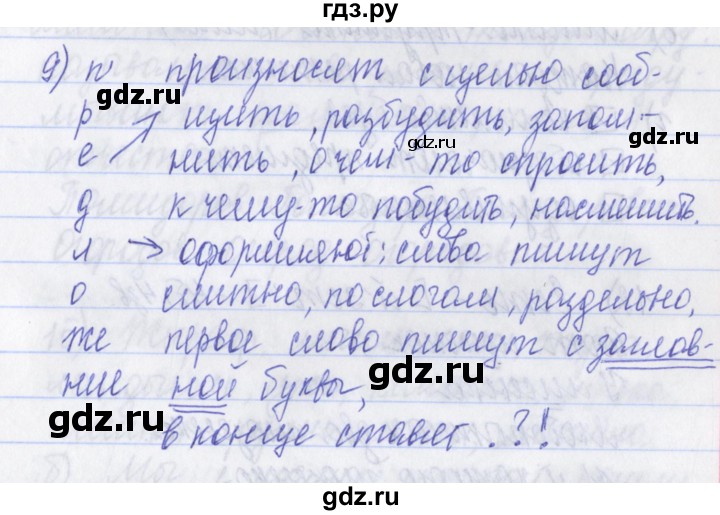 гдз.ру
9) п произносят с целью сооб-
gdz.ru
р щить, разбудить, запом-
gdz.ru
е нить, о чем-то спросить,
д к чему-то побудить, насмешить.
gdz.ru
л → оформляют: слова пишут
о слитно, по слогам, раздельно,
же первое слово пишут с заглав-
gdz.ru
ние ной буквы,
в конце ставят . ? !
gdz.ru
gdz.ru